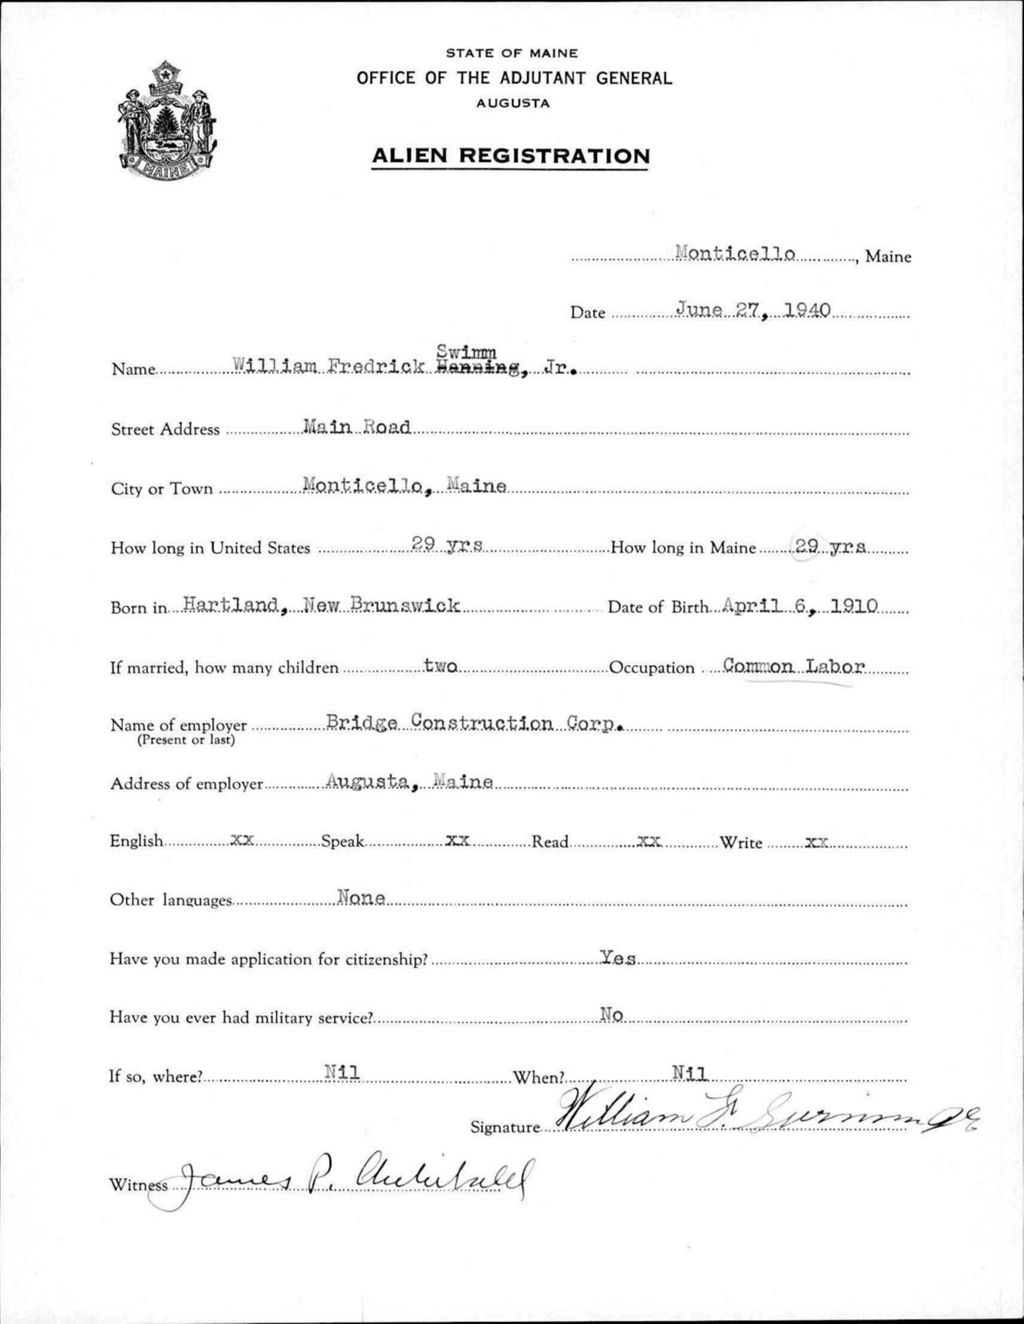 STATE OF MAINE
OFFICE OF THE ADJUTANT GENERAL
AUGUSTA
ALIEN REGISTRATION
MAINE
Monticello, Maine
Date June 27, 1940
Swimm
Name William Fredrick Henning, Jr.
Street Address Main Road
City or Town Monticello, Maine
How long in United States 29 yrs How long in Maine 29 yrs
Born in Hartland, New Brunswick Date of Birth April 6, 1910
If married, how many children two Occupation Common Labor
Name of employer Bridge Construction Corp.
(Present or last)
Address of employer Augusta, Maine
English xx Speak xx Read xx Write xx
Other languages None
Have you made application for citizenship? Yes
Have you ever had military service? No
If so, where? Nil When? Nil
Signature William F. Swimm Jr
Witness James P. Archibald